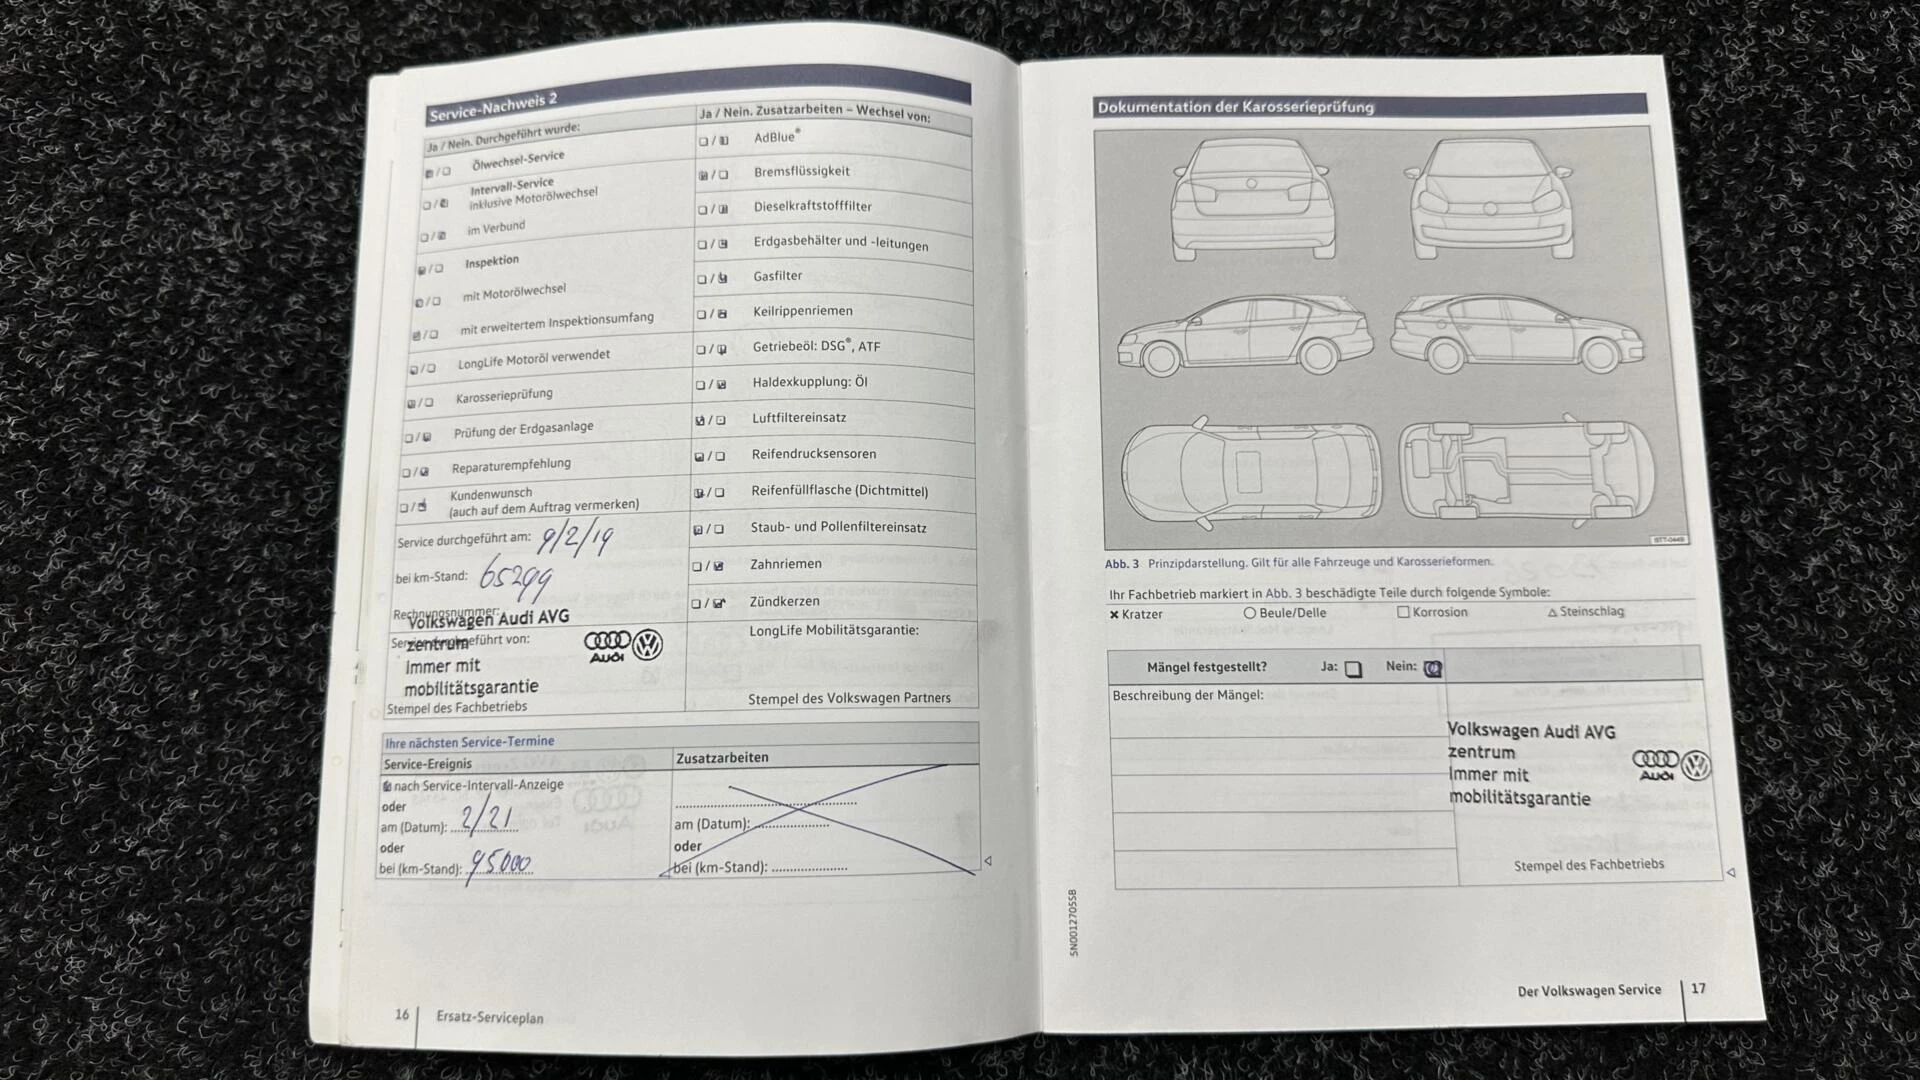 Service-Nachweis 2
Ja / Nein. Durchgeführt wurde:
Ölwechsel-Service
Intervall-Service
inklusive Motorölwechsel
im Verbund
Inspektion
mit Motorölwechsel
mit erweitertem Inspektionsumfang
LongLife Motoröl verwendet
Karosserieprüfung
Prüfung der Erdgasanlage
Reparaturempfehlung
Kundenwunsch
(auch auf dem Auftrag vermerken)
Service durchgeführt am: 9/2/19
bei km-Stand: 65299
Rechnungsnummer:
Volkswagen Audi AVG
Service durchgeführt von:
zentrum
Immer mit
mobilitätsgarantie
AUDI
Stempel des Fachbetriebs
Ja / Nein. Zusatzarbeiten – Wechsel von:
AdBlue®
Bremsflüssigkeit
Dieselkraftstofffilter
Erdgasbehälter und -leitungen
Gasfilter
Keilrippenriemen
Getriebeöl: DSG®, ATF
Haldexkupplung: Öl
Luftfiltereinsatz
Reifendrucksensoren
Reifenfüllflasche (Dichtmittel)
Staub- und Pollenfiltereinsatz
Zahnriemen
Zündkerzen
LongLife Mobilitätsgarantie:
Stempel des Volkswagen Partners
Ihre nächsten Service-Termine
Service-Ereignis
nach Service-Intervall-Anzeige
oder
am (Datum): 2/21
oder
bei (km-Stand): 95000
Zusatzarbeiten
am (Datum):
oder
bei (km-Stand):
16
Ersatz-Serviceplan
Dokumentation der Karosserieprüfung
Abb. 3 Prinzipdarstellung. Gilt für alle Fahrzeuge und Karosserieformen.
Ihr Fachbetrieb markiert in Abb. 3 beschädigte Teile durch folgende Symbole:
Kratzer
Beule/Delle
Korrosion
Steinschlag
Mängel festgestellt? Ja: Nein:
Beschreibung der Mängel:
Volkswagen Audi AVG
zentrum
Immer mit
mobilitätsgarantie
AUDI
Stempel des Fachbetriebs
5N0012705SB
Der Volkswagen Service
17